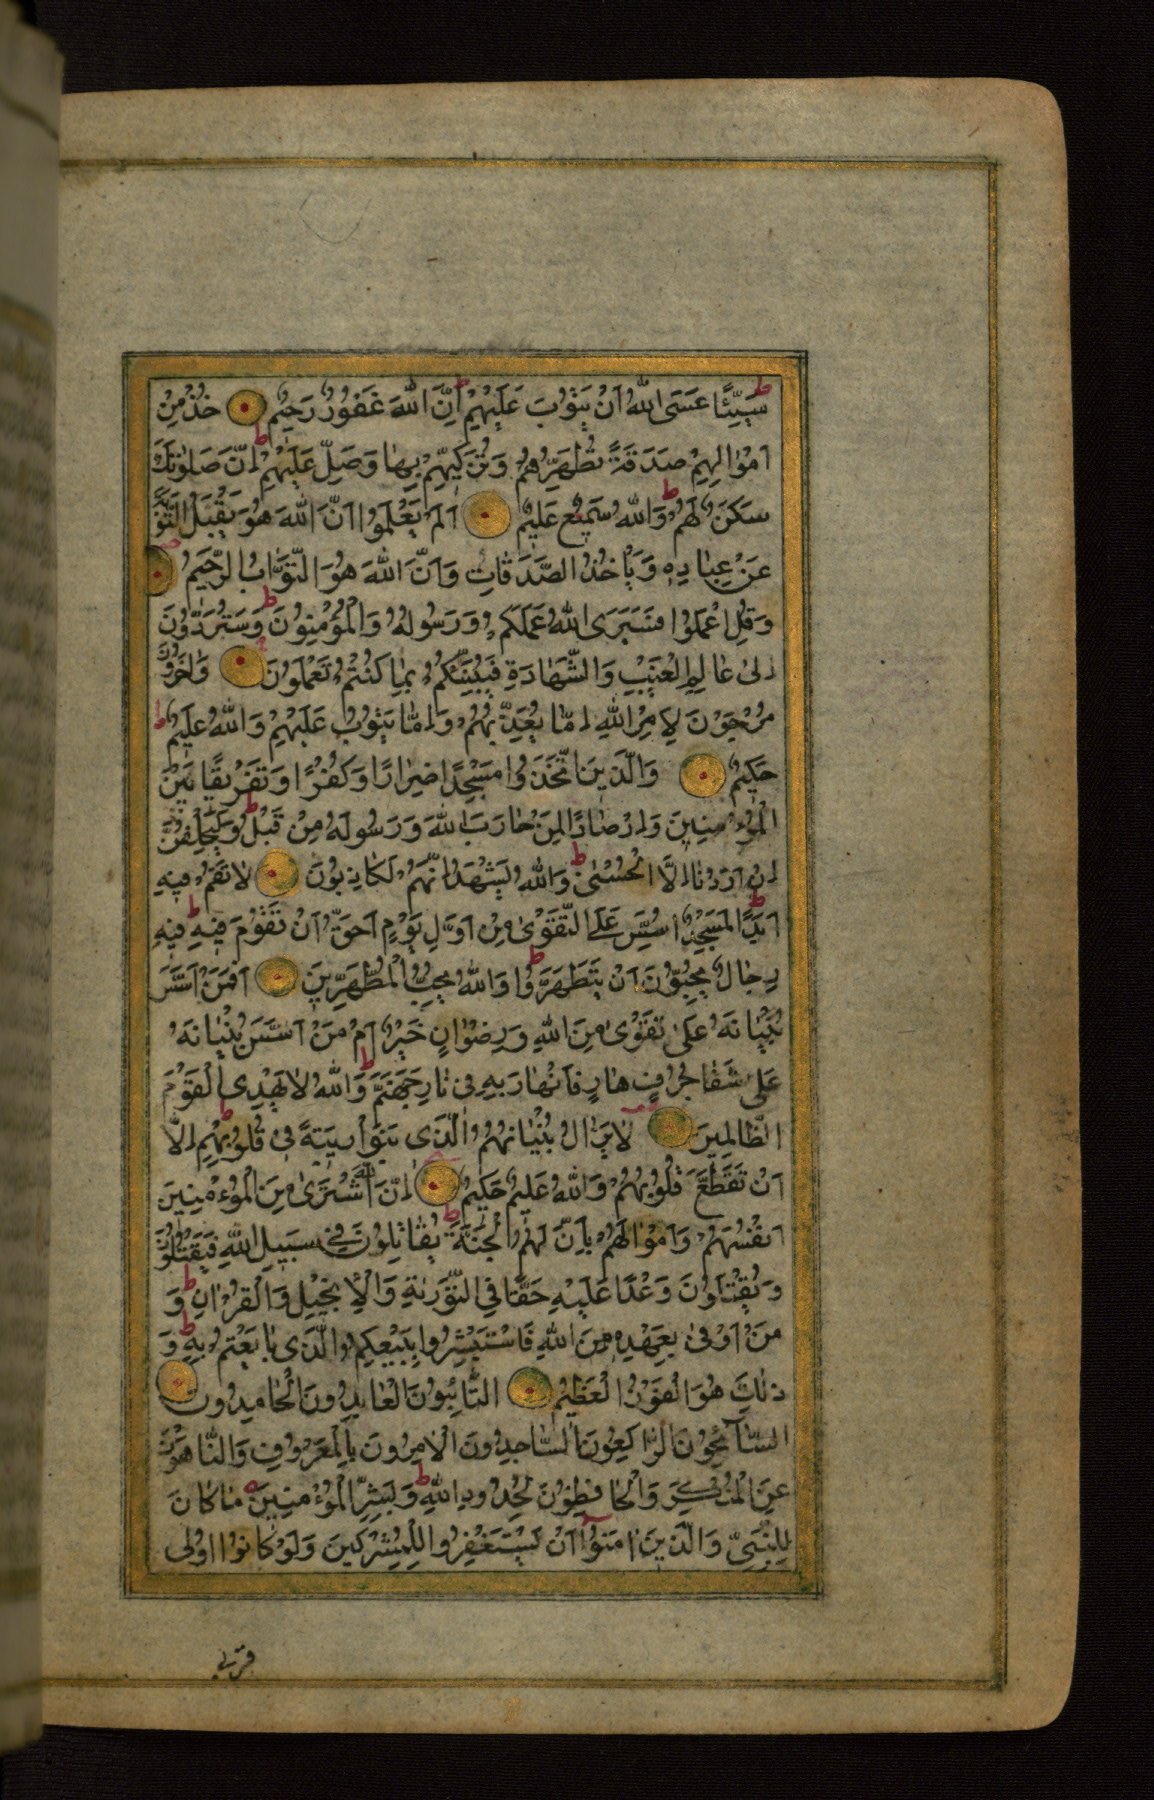 سَيِّئًا عَسَى اللهُ اَنْ يَتُوْبَ عَلَيْهِمْ اِنَّ اللهَ غَفُوْرٌ رَحِيْمٌ خُذْ مِنْ
اَمْوٰالِهِمْ صَدَقَةً تُطَهِّرُهُمْ وَتُزَكِّيْهِمْ بِهٰا وَصَلِّ عَلَيْهِمْ اِنَّ صَلٰوتَكَ
سَكَنٌ لَهُمْ وَاللهُ سَمِيْعٌ عَلِيْمٌ اَلَمْ يَعْلَمُوْا اَنَّ اللهَ هُوَ يَقْبَلُ التَّوْبَةَ
عَنْ عِبٰادِهِ وَيَاْخُذُ الصَّدَقٰاتِ وَاَنَّ اللهَ هُوَ التَّوّٰابُ الرَّحِيْمُ
وَقُلِ اعْمَلُوْا فَسَيَرَى اللهُ عَمَلَكُمْ وَرَسُوْلُهُ وَالْمُؤْمِنُوْنَ وَسَتُرَدُّوْنَ
اِلىٰ عٰالِمِ الْغَيْبِ وَالشَّهٰادَةِ فَيُنَبِّئُكُمْ بِمٰا كُنْتُمْ تَعْمَلُوْنَ وَاٰخَرُوْنَ
مُرْجَوْنَ لِاَمْرِ اللهِ اِمّٰا يُعَذِّبُهُمْ وَاِمّٰا يَتُوْبُ عَلَيْهِمْ وَاللهُ عَلِيْمٌ
حَكِيْمٌ وَالَّذِيْنَ اتَّخَذُوْا مَسْجِدًا ضِرٰارًا وَكُفْرًا وَتَفْرِيْقًا بَيْنَ
الْمُؤْمِنِيْنَ وَاِرْصٰادًا لِمَنْ حٰارَبَ اللهَ وَرَسُوْلَهُ مِنْ قَبْلُ وَلَيَحْلِفُنَّ
اِنْ اَرَدْنٰا اِلَّا الْحُسْنىٰ وَاللهُ يَشْهَدُ اِنَّهُمْ لَكٰاذِبُوْنَ لٰا تَقُمْ فِيْهِ
اَبَدًا لَمَسْجِدٌ اُسِّسَ عَلَى التَّقْوىٰ مِنْ اَوَّلِ يَوْمٍ اَحَقُّ اَنْ تَقُوْمَ فِيْهِ فِيْهِ
رِجٰالٌ يُحِبُّوْنَ اَنْ يَتَطَهَّرُوْا وَاللهُ يُحِبُّ الْمُطَّهِّرِيْنَ اَفَمَنْ اَسَّسَ
بُنْيٰانَهُ عَلىٰ تَقْوىٰ مِنَ اللهِ وَرِضْوٰانٍ خَيْرٌ اَمْ مَنْ اَسَّسَ بُنْيٰانَهُ
عَلىٰ شَفٰا جُرُفٍ هٰارٍ فَانْهٰارَ بِهِ فِىْ نٰارِ جَهَنَّمَ وَاللهُ لٰا يَهْدِى الْقَوْمَ
الظّٰالِمِيْنَ لٰا يَزٰالُ بُنْيٰانُهُمُ الَّذِى بَنَوْا رِيْبَةً فِىْ قُلُوْبِهِمْ اِلَّا
اَنْ تَقَطَّعَ قُلُوْبُهُمْ وَاللهُ عَلِيْمٌ حَكِيْمٌ اِنَّ اللهَ اشْتَرىٰ مِنَ الْمُؤْمِنِيْنَ
اَنْفُسَهُمْ وَاَمْوٰالَهُمْ بِاَنَّ لَهُمُ الْجَنَّةَ يُقٰاتِلُوْنَ فِىْ سَبِيْلِ اللهِ فَيَقْتُلُوْنَ
وَيُقْتَلُوْنَ وَعْدًا عَلَيْهِ حَقًّا فِى التَّوْرٰيةِ وَالْاِنْجِيْلِ وَالْقُرْاٰنِ وَ
مَنْ اَوْفىٰ بِعَهْدِهِ مِنَ اللهِ فَاسْتَبْشِرُوا بِبَيْعِكُمُ الَّذِى بٰايَعْتُمْ بِهِ وَ
ذٰلِكَ هُوَ الْفَوْزُ الْعَظِيْمُ التّٰائِبُوْنَ الْعٰابِدُوْنَ الْحٰامِدُوْنَ
السّٰآئِحُوْنَ الرّٰاكِعُوْنَ السّٰاجِدُوْنَ الْاٰمِرُوْنَ بِالْمَعْرُوْفِ وَالنّٰاهُوْنَ
عَنِ الْمُنْكَرِ وَالْحٰافِظُوْنَ لِحُدُوْدِ اللهِ وَبَشِّرِ الْمُؤْمِنِيْنَ مٰا كٰانَ
لِلنَّبِىِّ وَالَّذِيْنَ اٰمَنُوْا اَنْ يَسْتَغْفِرُوا لِلْمُشْرِكِيْنَ وَلَوْ كٰانُوْا اُوْلى
قربى